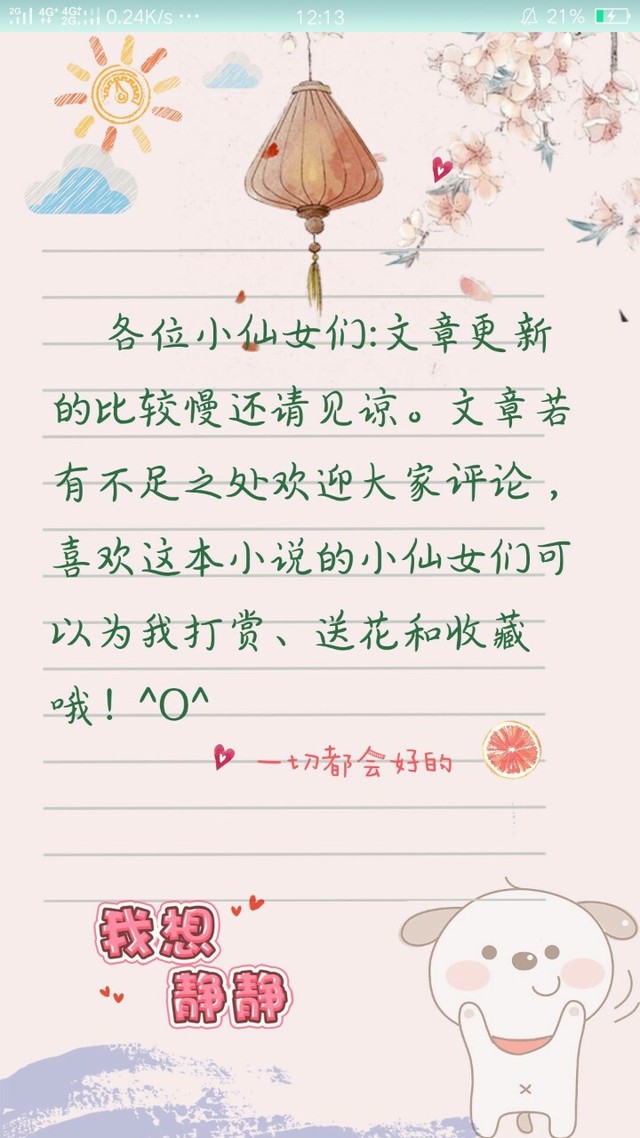 2G 4G+ 4G+ 2G 0.24K/s ··· 12:13 21%
各位小仙女们:文章更新
的比较慢还请见谅。文章若
有不足之处欢迎大家评论，
喜欢这本小说的小仙女们可
以为我打赏、送花和收藏
哦！^O^
一切都会好的
我想
静静